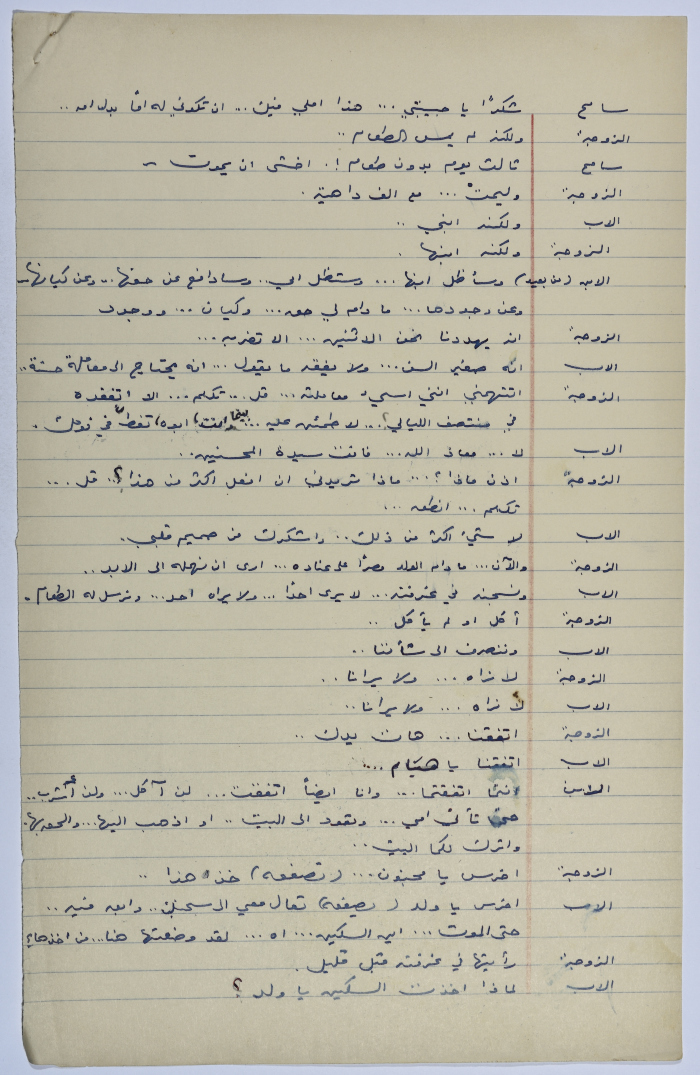 سامح شكرًا يا حبيبتي ... هذا املي فيك ... ان تكوني له امًا بدل امه ..
الزوجة ولكنه لم يمس الطعام ..
سامح ثالث يوم بدون طعام !. اخشى ان يموت ~
الزوجة وليمتْ ... مع الف داهية .
الاب ولكنه ابني ..
الزوجة ولكنه ابنها .
الابن (من بعيد) وسأظل ابنها ... وستظل امي .. وسادافع عن حقها .. وعن كيانها ..
وعن وجودها ... ما دام لي حق ... وكيان ... ووجود
الزوجة انه يهددنا نحن الاثنين ... الا تضربه ...
الاب انه صغير السن ... ولا يفقه ما يقول ... انه يحتاج الى معاملة حسنة ..
الزوجة اتتهمني انني اسيء معاملته ... قل ... تكلم ... الا اتفقده
في منتصف الليالي ؟ .. لاطمئن عليه .. بينما انت، ابوه، تغطّ في نومك .
الاب لا ... معاذ الله ... فانت سيدة المحسنين ..
الزوجة اذن ماذا ؟ ... ماذا تريدني ان افعل اكثر من هذا ؟ .. قل ...
تكلم ... انطق ...
الاب لا شيء اكثر من ذلك .. واشكرك من صميم قلبي .
الزوجة والآن ... ما دام الولد مصرًا على عناده ... ارى ان نهمله الى الابد ..
الاب ونسجنه في غرفته ... لا يرى احدًا ... ولا يراه احد ... ونرسل له الطعام .
الزوجة أكل او لم يأكل ..
الاب وننصرف الى شأننا ..
الزوجة لا نراه ... ولا يرانا ..
الاب لا نراه ... ولا يرانا ..
الزوجة اتفقنا ... هات يدك ..
الاب اتفقنا يا هيام ....
الابن انتما اتفقتما ... وانا ايضاً اتفقت ... لن آكل ... ولن أشرب ..
حتى تأتي امي ... وتعود الى البيت .. او اذهب اليها ... والحق بها .
واترك لكما البيت ..
الزوجة اخرس يا مجنون ... (تصفعه) خذ هذا ..
الاب اخرس يا ولد (يصفعه) تعال معي الى سجنك .. وابق فيه ..
حتى الموت ... اين السكين ... اه ... لقد وضعتها هنا .. من اخذها؟
الزوجة رأيتها في غرفته قبل قليل .
الاب لماذا اخذت السكين يا ولد ؟